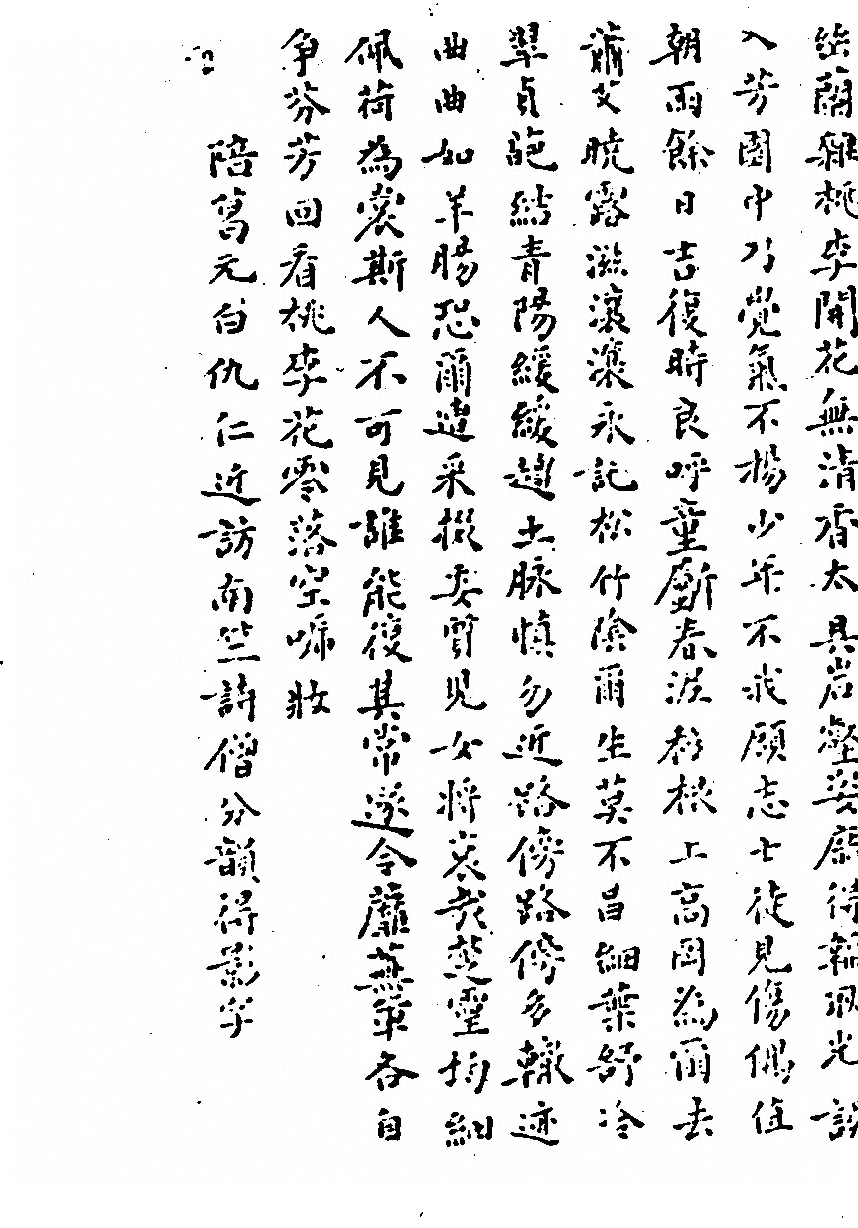 幽蘭雜桃李開花無清香太具岩壑姿寂待韜夙光誤
入芳園中乃覺氣不揚少年不我顧志士徒見傷偶值
朝雨餘日吉復時良呼童斸春泥移根上高岡為爾去
蕭艾曉露滋瀼瀼永託松竹陰爾生莫不昌細葉舒冷
翠貞葩結青陽緩緩趁土脉慎勿近路傍路傍多轍迹
曲曲如羊腸恐爾遭采掇委質兒女將哀哉楚靈均紉
佩荷為裳斯人不可見誰能復其常遂令蘼蕪輩各自
争芬芳回看桃李花零落空啼妝
陪葛元白仇仁近訪南竺詩僧分韻得影字